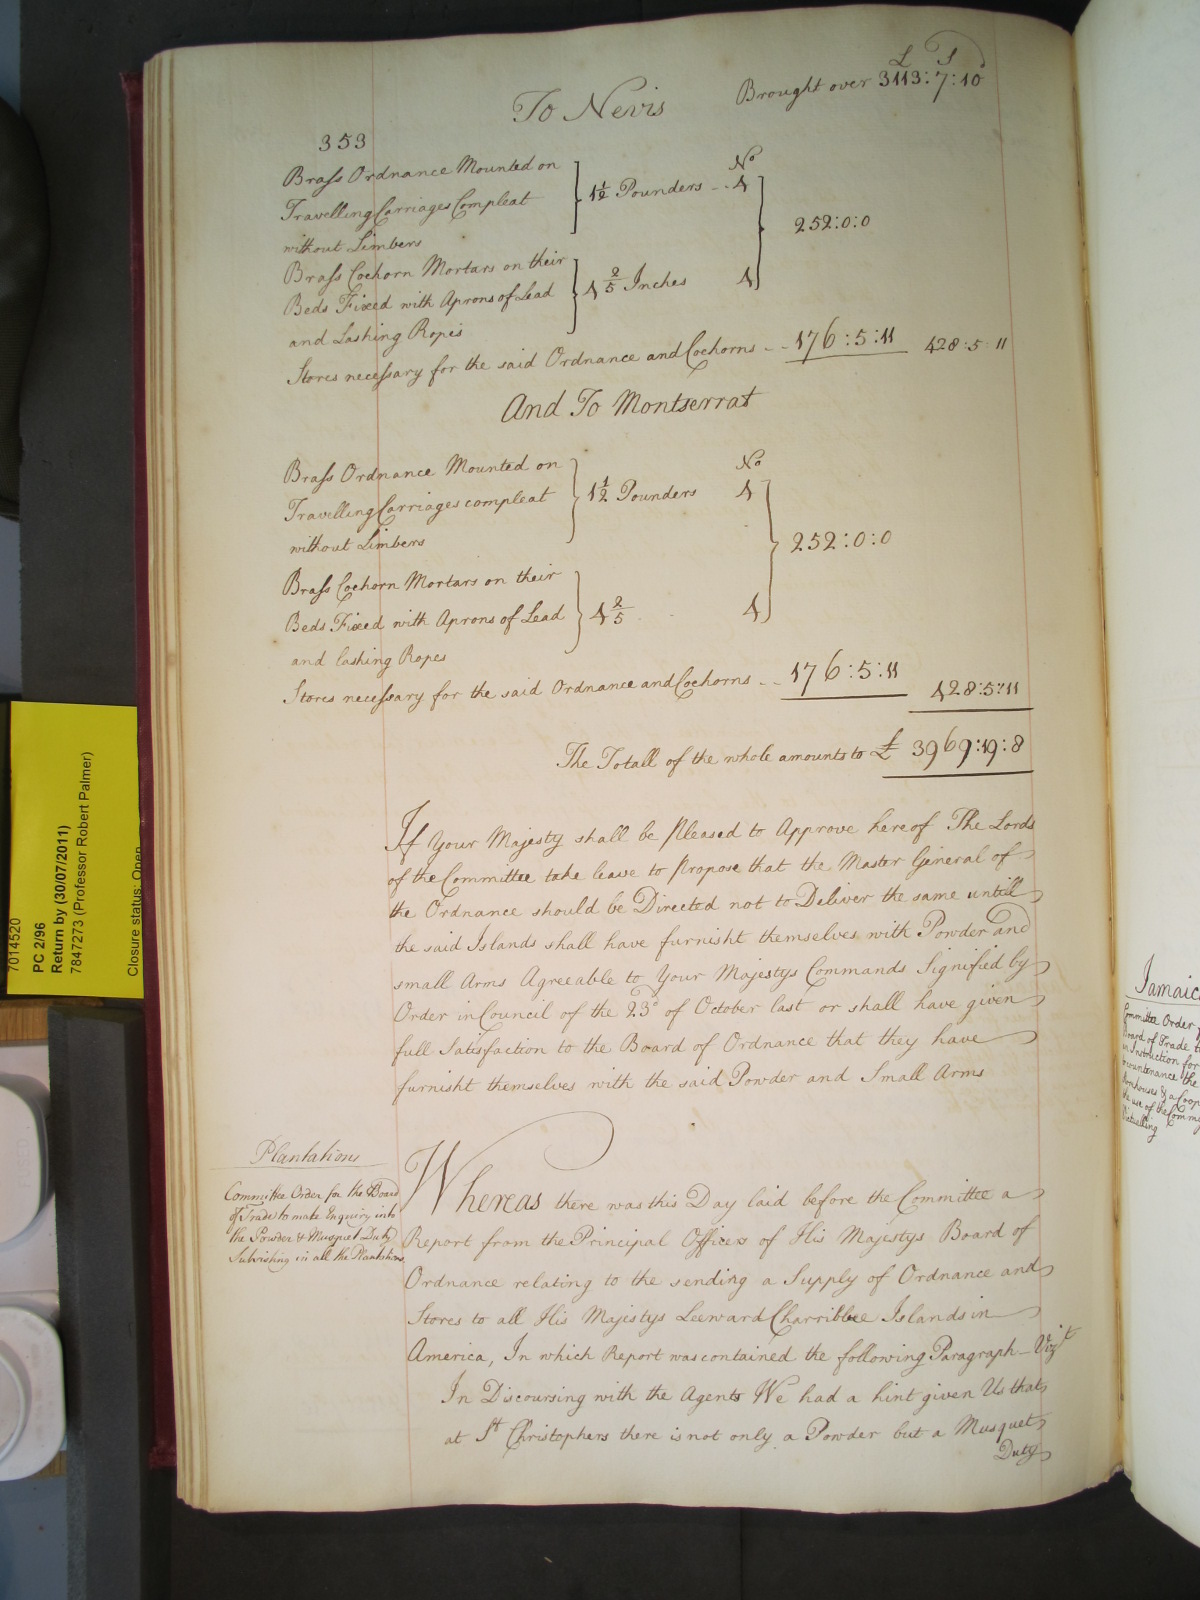 £ S d
To Nevis Brought over 3113:7:10
353
No
Brass Ordnance Mounted on
Travelling Carriages Compleat 1½ Pounders - - 4
without Limbers
252:0:0
Brass Coehorn Mortars on their
Beds Fixed with Aprons of Lead 4 2/5 Inches 4
and Lashing Ropes
Stores necessary for the said Ordnance and Coehorns - - 176:5:11 428:5:11
And To Montserrat
No
Brass Ordnance Mounted on
Travelling Carriages compleat 1½ Pounders 4
without Limbers
252:0:0
Brass Coehorn Mortars on their
Beds Fixed with Aprons of Lead 4 2/5 4
and lashing Ropes
Stores necessary for the said Ordnance and Coehorns - - 176:5:11 428:5:11
The Totall of the whole amounts to £ 3969:19:8
If Your Majesty shall be pleased to Approve hereof The Lords
of the Committee take leave to propose that the Master General of
the Ordnance should be Directed not to Deliver the same untill
the said Islands shall have furnisht themselves with Powder and
small Arms Agreeable to Your Majestys Commands Signified by
Order in Council of the 23d of October last or shall have given
full Satisfaction to the Board of Ordnance that they have
furnisht themselves with the said Powder and Small Arms
Plantations
Committee Order for the Board
of Trade to make Enquiry into
the Powder & Musquet Duty
Subsisting in all the Plantations
Whereas there was this Day laid before the Committee a
Report from the Principal Officers of His Majestys Board of
Ordnance relating to the sending a Supply of Ordnance and
Stores to all His Majestys Leeward Charribbee Islands in
America, In which Report was contained the following Paragraph - Vizt
In Discoursing with the Agents We had a hint given Us that
at St Christophers there is not only a Powder but a Musquet
Duty
7014520
PC 2/96
Return by (30/07/2011)
7847273 (Professor Robert Palmer)
Closure status: Open
Jamaic
Committee Order
Board of Trade
an Instruction for
the
& a Coop
the use of the
Victualling